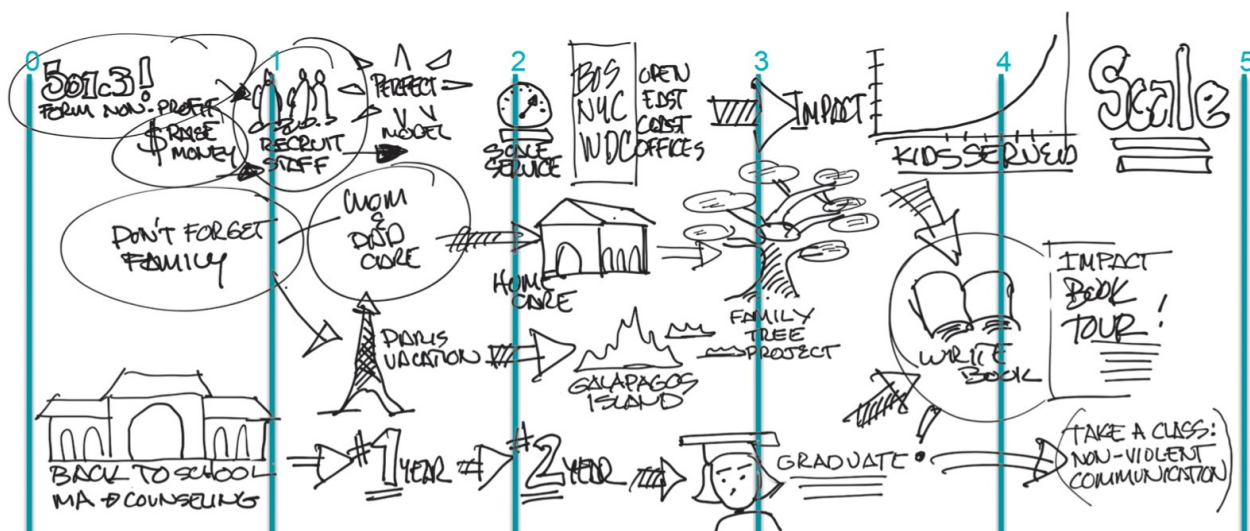 0
1
2
3
4
5
501c3!
FORM NON-PROFIT
$ RAISE
MONEY
RECRUIT
STAFF
PERFECT
MODEL
SCALE
SERVICE
BOS
NYC
WDC
OPEN
EAST
COAST
OFFICES
IMPACT
KIDS SERVED
Scale
DON'T FORGET
FAMILY
MOM
&
DAD
CARE
HOME
CARE
FAMILY
TREE
PROJECT
WRITE
BOOK
IMPACT
BOOK
TOUR!
PARIS
VACATION
GALAPAGOS
ISLAND
BACK TO SCHOOL
MA & COUNSELING
#1 YEAR
#2 YEAR
GRADUATE!
TAKE A CLASS:
NON-VIOLENT
COMMUNICATION